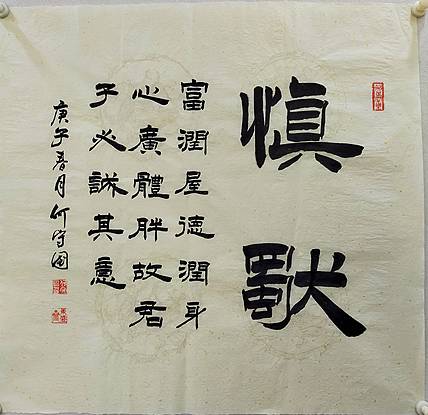 慎獨
富潤屋德潤身
心廣體胖故君
子必誠其意
庚子春月何守